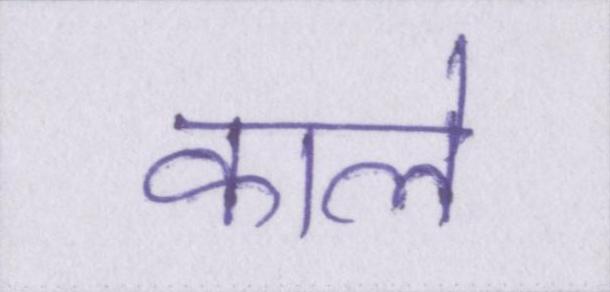 काले